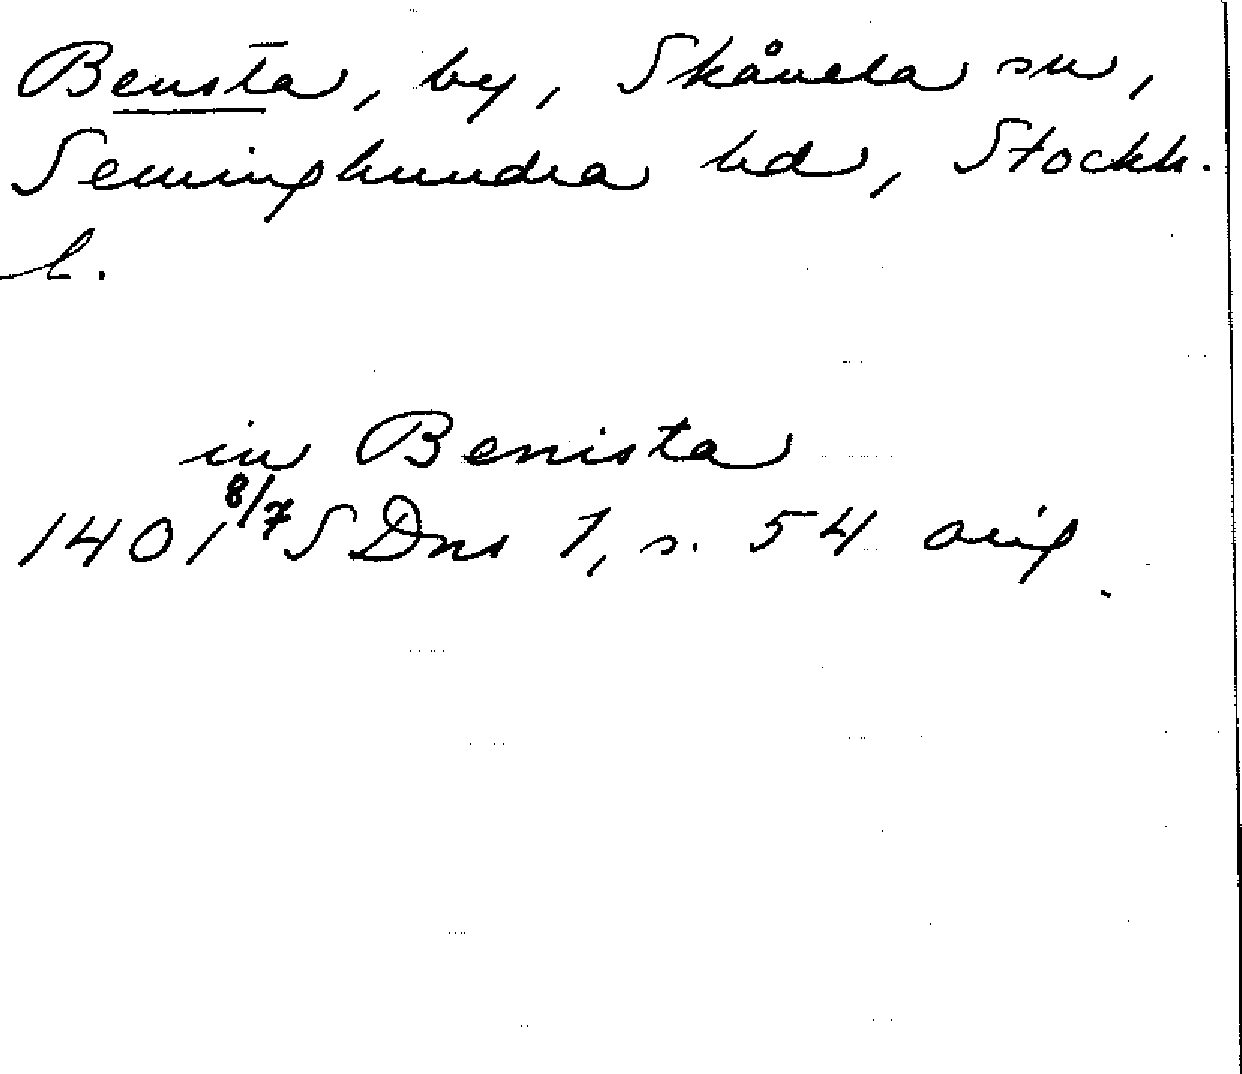 Bensta, by, Skånela sn,
Seminghundra hd, Stockh.
l.
in Benista
1401 8/7 SDns 1, s. 54 orig.